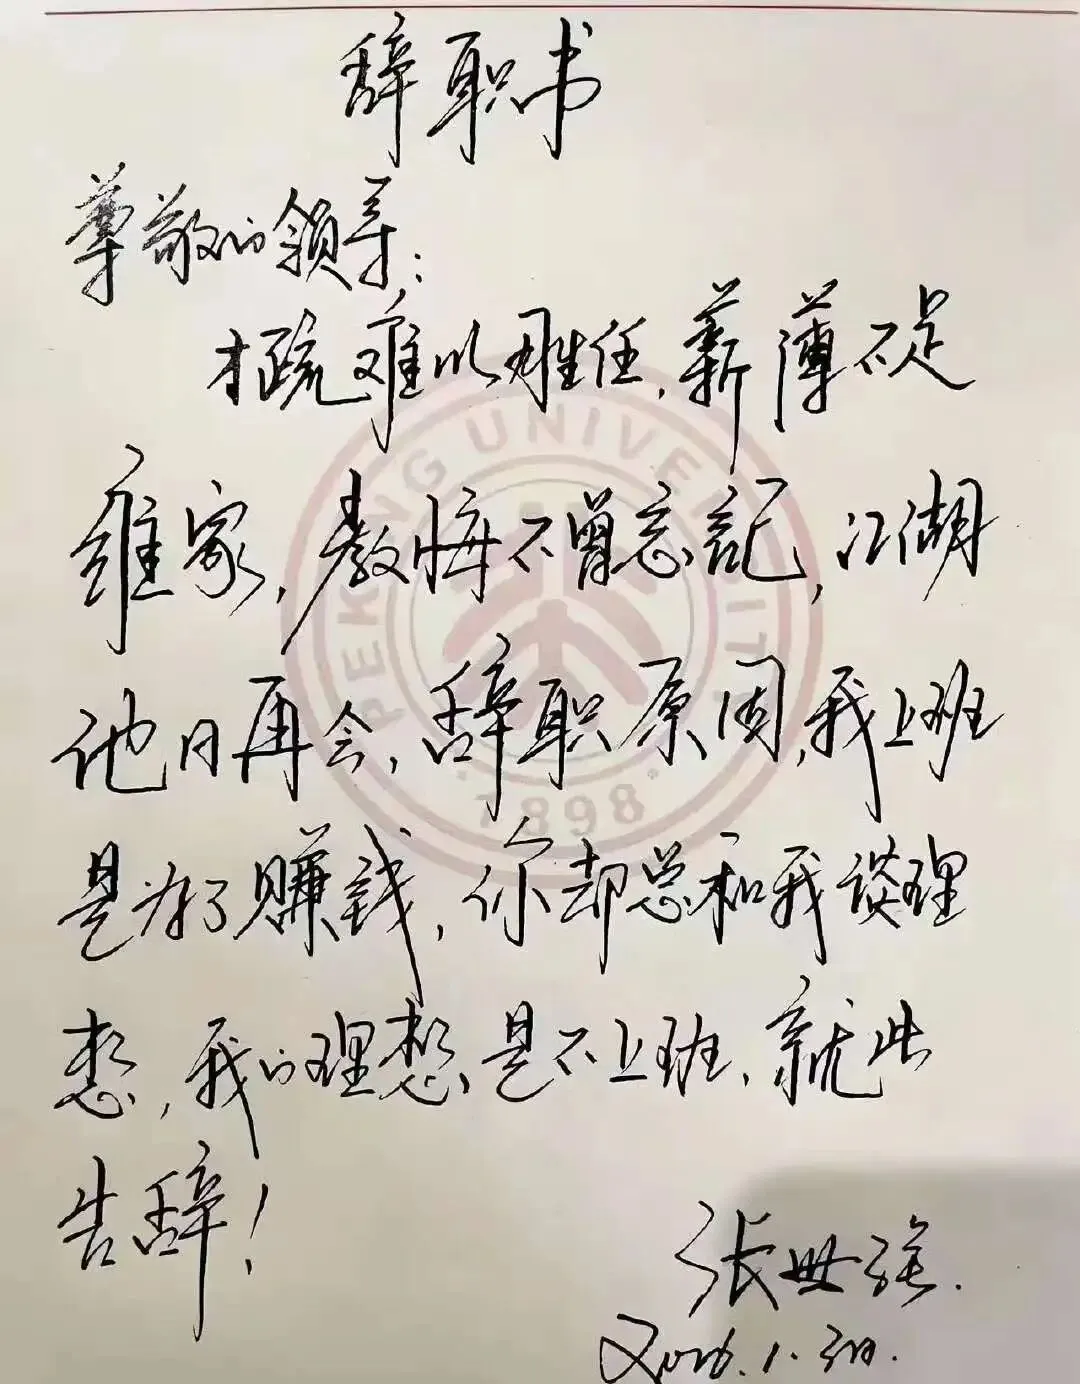 辞职书
尊敬的领导：
才疏难以胜任,薪薄不足
维家,教悔不曾忘记,江湖
他日再会,辞职原因,我上班
是为了赚钱,你却总和我谈理
想,我的理想是不上班,就此
告辞!
张世
PEKING UNIVERSITY
1898